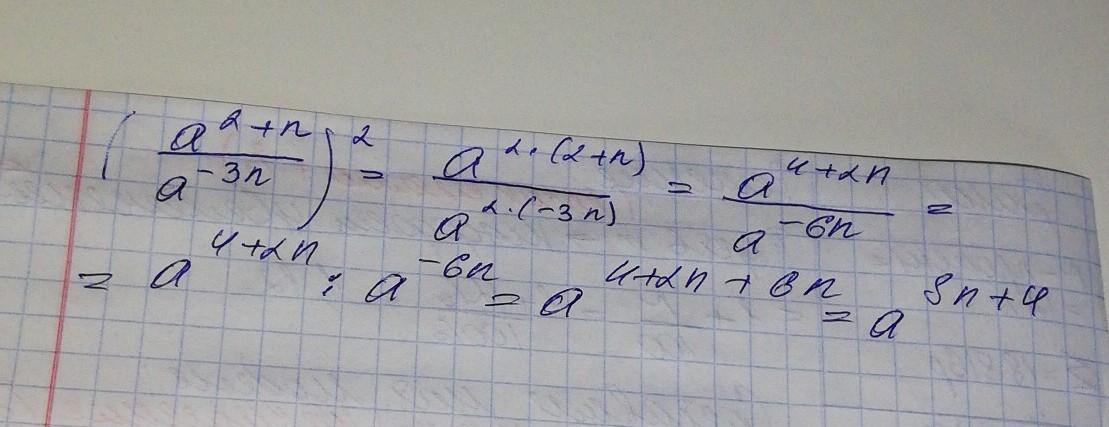 (a^{2+n} / a^{-3n})^2 = a^{2·(2+n)} / a^{2·(-3n)} = a^{4+2n} / a^{-6n} =
= a^{4+2n} : a^{-6n} = a^{4+2n+6n} = a^{8n+4}